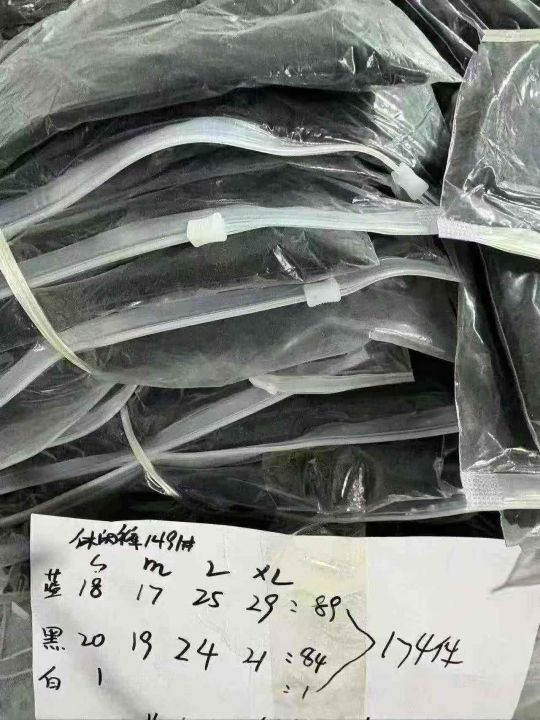 S M L XL
蓝 18 17 25 29 = 89
黑 20 19 24 21 = 84
白 1 = 1
174件